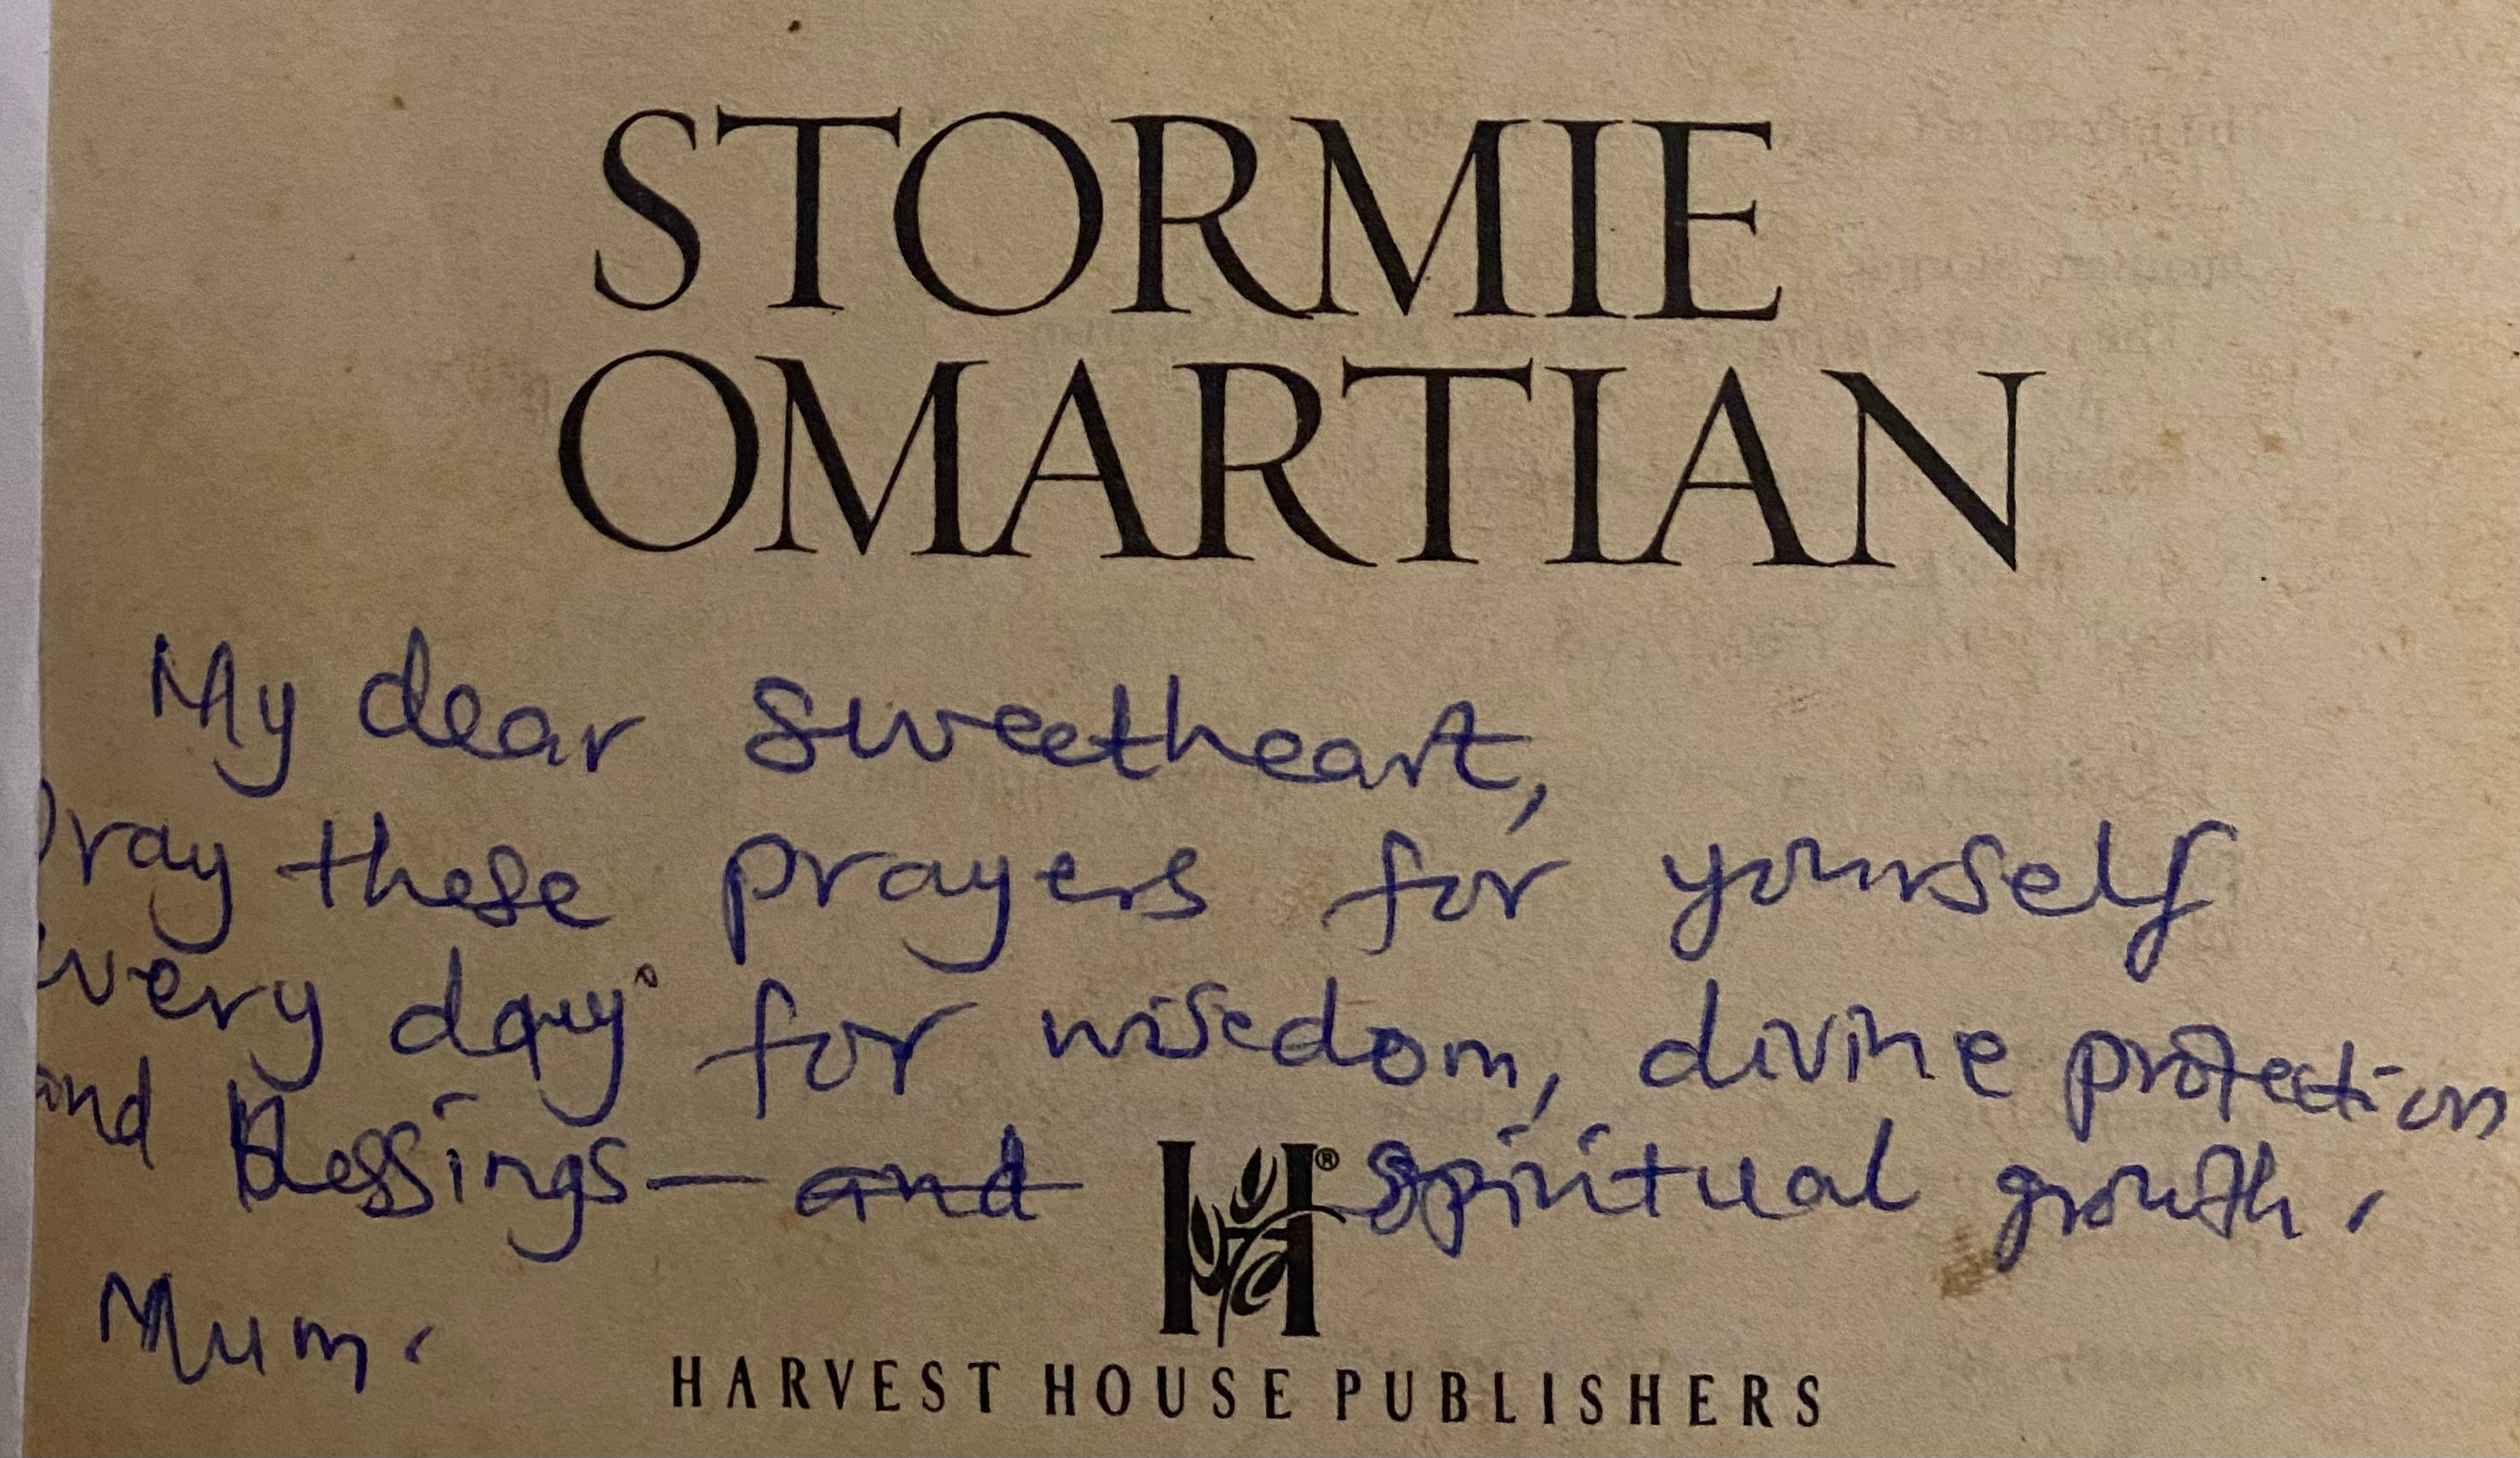 STORMIE
OMARTIAN
My dear sweetheart,
Pray these prayers for yourself
every day for wisedom, divine protection
and Blessings — and Spiritual growth.
Mum.
H®
HARVEST HOUSE PUBLISHERS